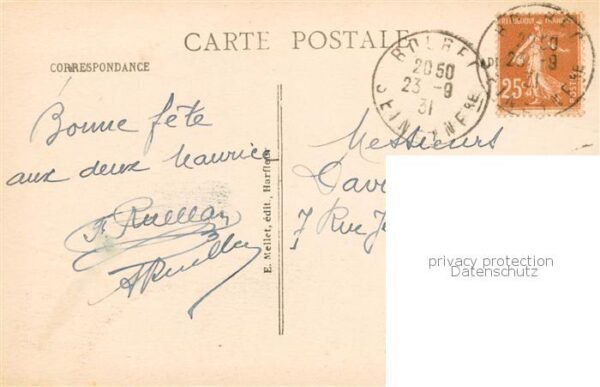 CARTE POSTALE
CORRESPONDANCE
Bonne fête
aux deux Maurice
F. Ruellan
A Ruellan
E. Mellet, édit., Harfleur
BOLBEC
20 50
23 - 9
31
SEINE INFRE
20 50
23 - 9
31
25c
Messieurs
7 Rue
privacy protection
Datenschutz